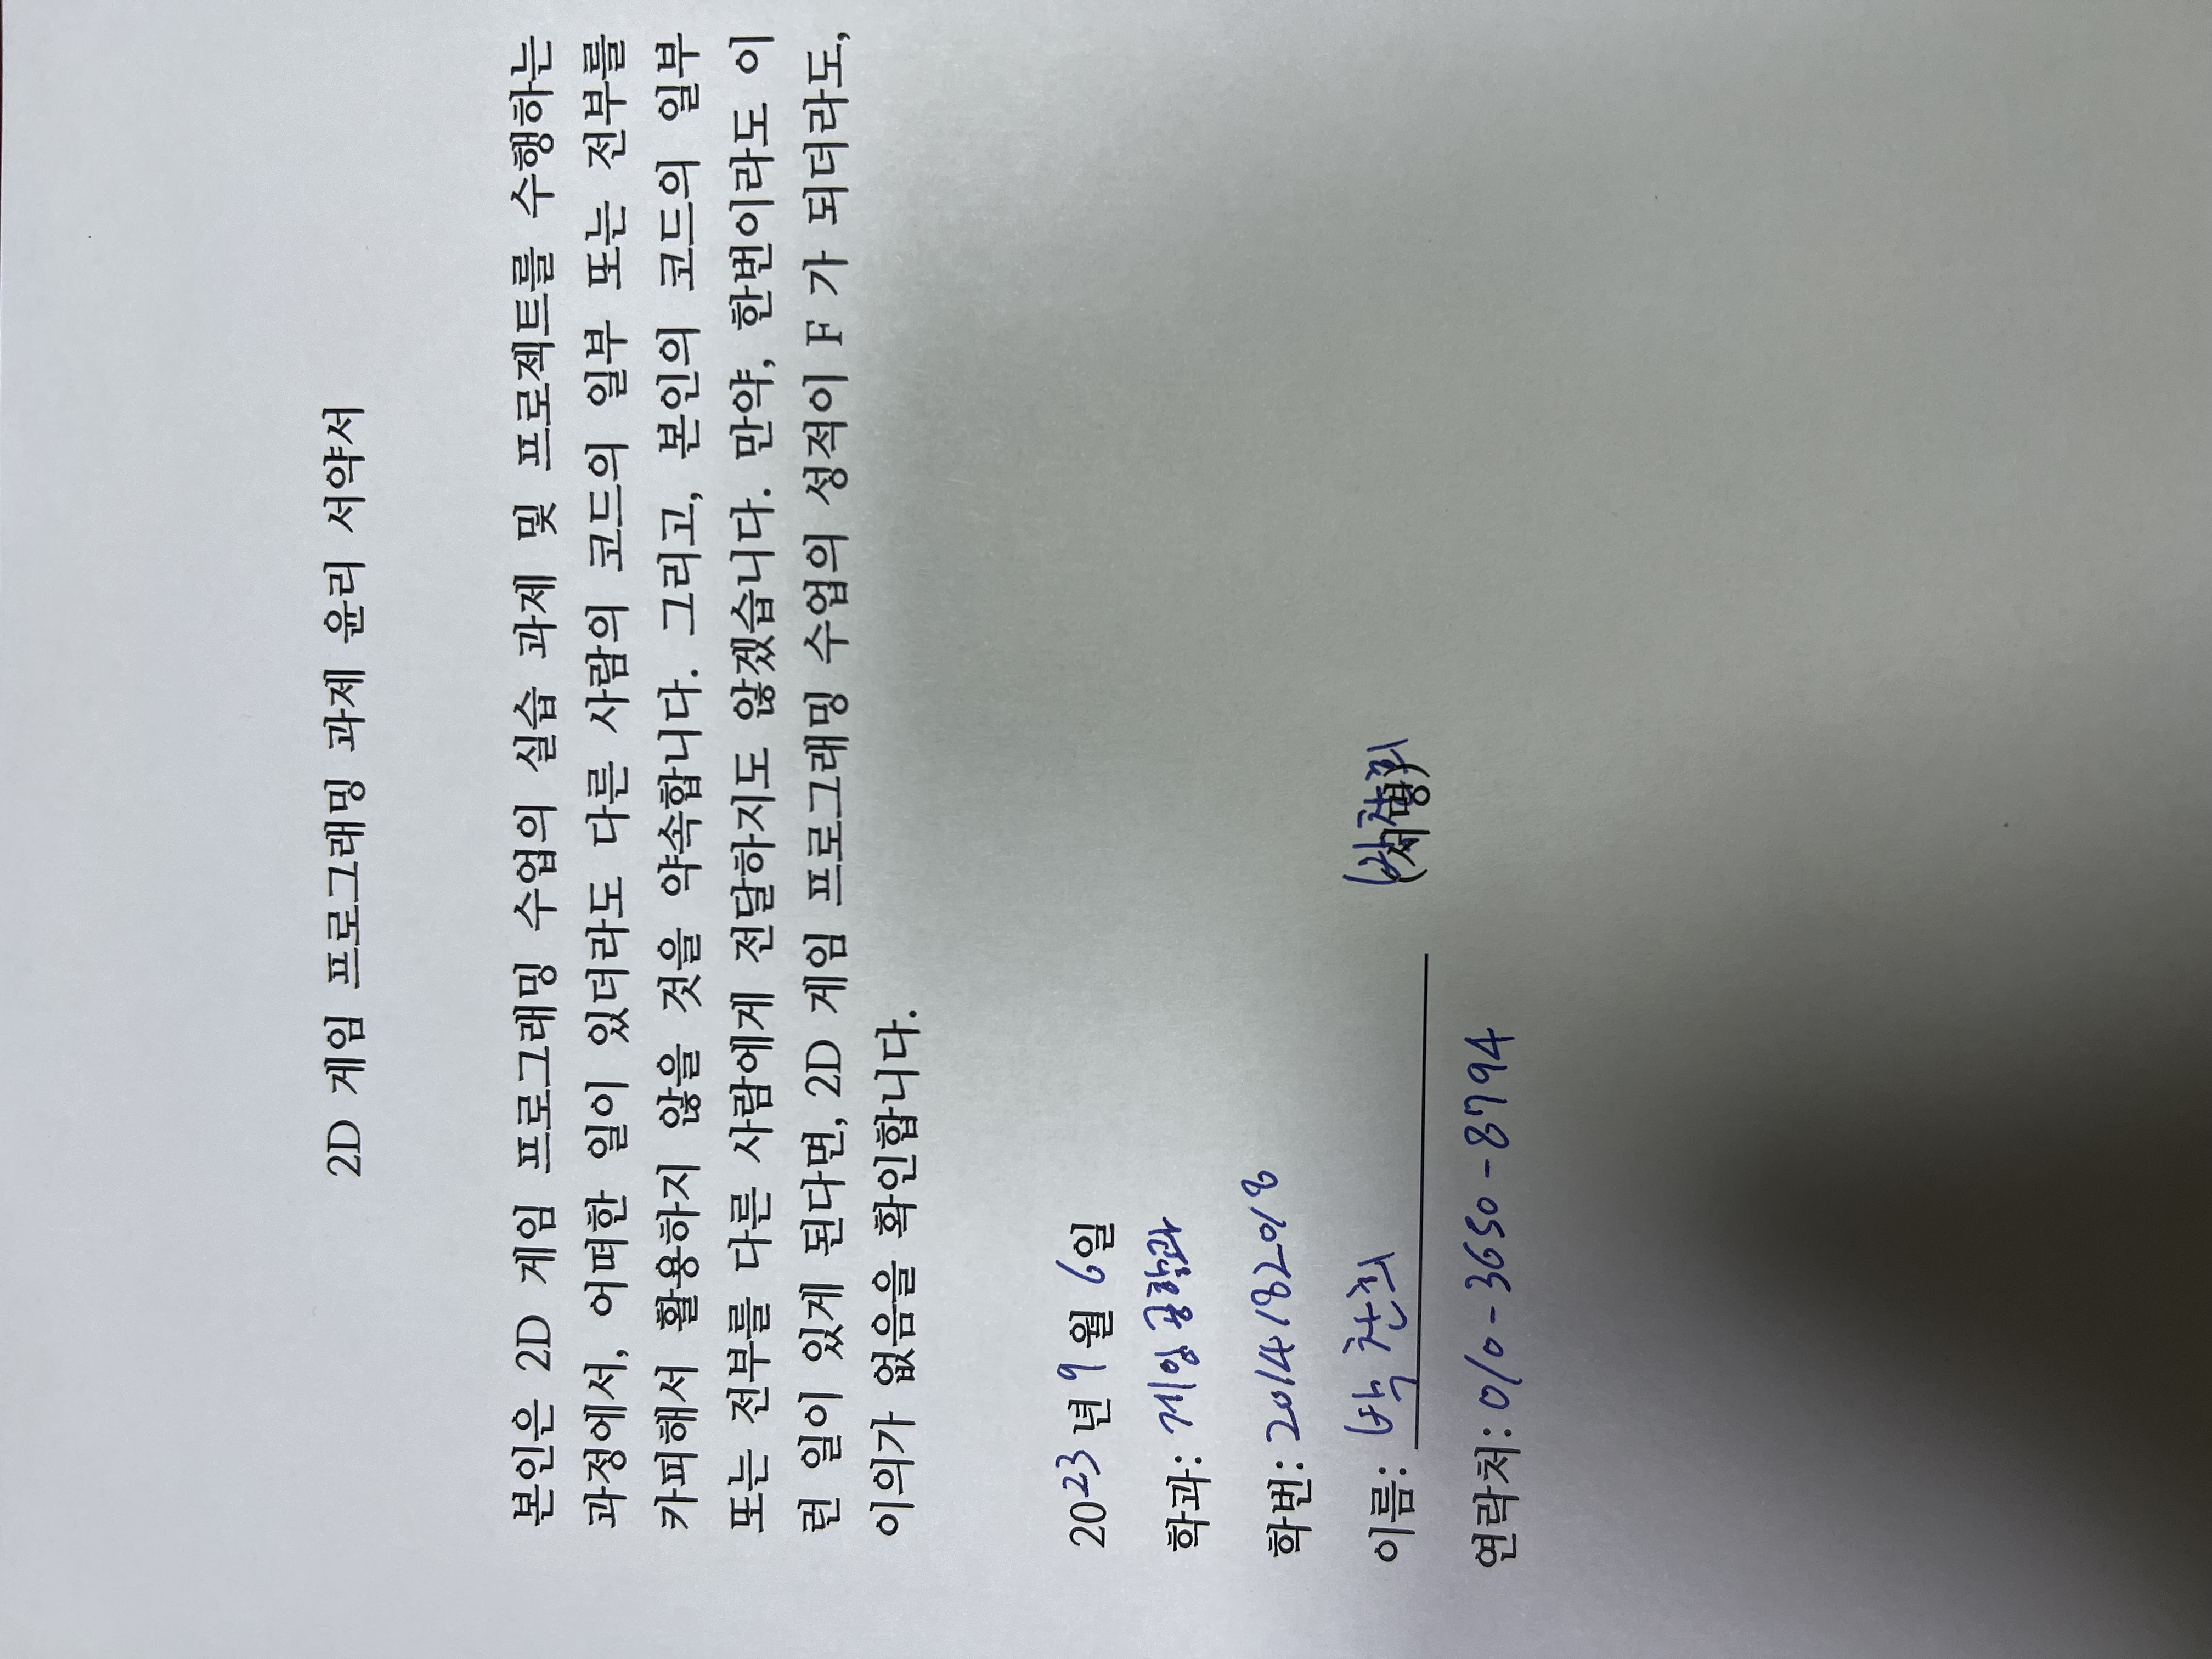 2D 게임 프로그래밍 과제 윤리 서약서
본인은 2D 게임 프로그래밍 수업의 실습 과제 및 프로젝트를 수행하는
과정에서, 어떠한 일이 있더라도 다른 사람의 코드의 일부 또는 전부를
카피해서 활용하지 않을 것을 약속합니다. 그리고, 본인의 코드의 일부
또는 전부를 다른 사람에게 전달하지도 않겠습니다. 만약, 한번이라도 이
런 일이 있게 된다면, 2D 게임 프로그래밍 수업의 성적이 F 가 되더라도,
이의가 없음을 확인합니다.
2023 년 9 월 6일
학과: 게임공학과
학번: 2014182018
이름: 박찬희 (서명) 박찬희
연락처: 010-3650-8794